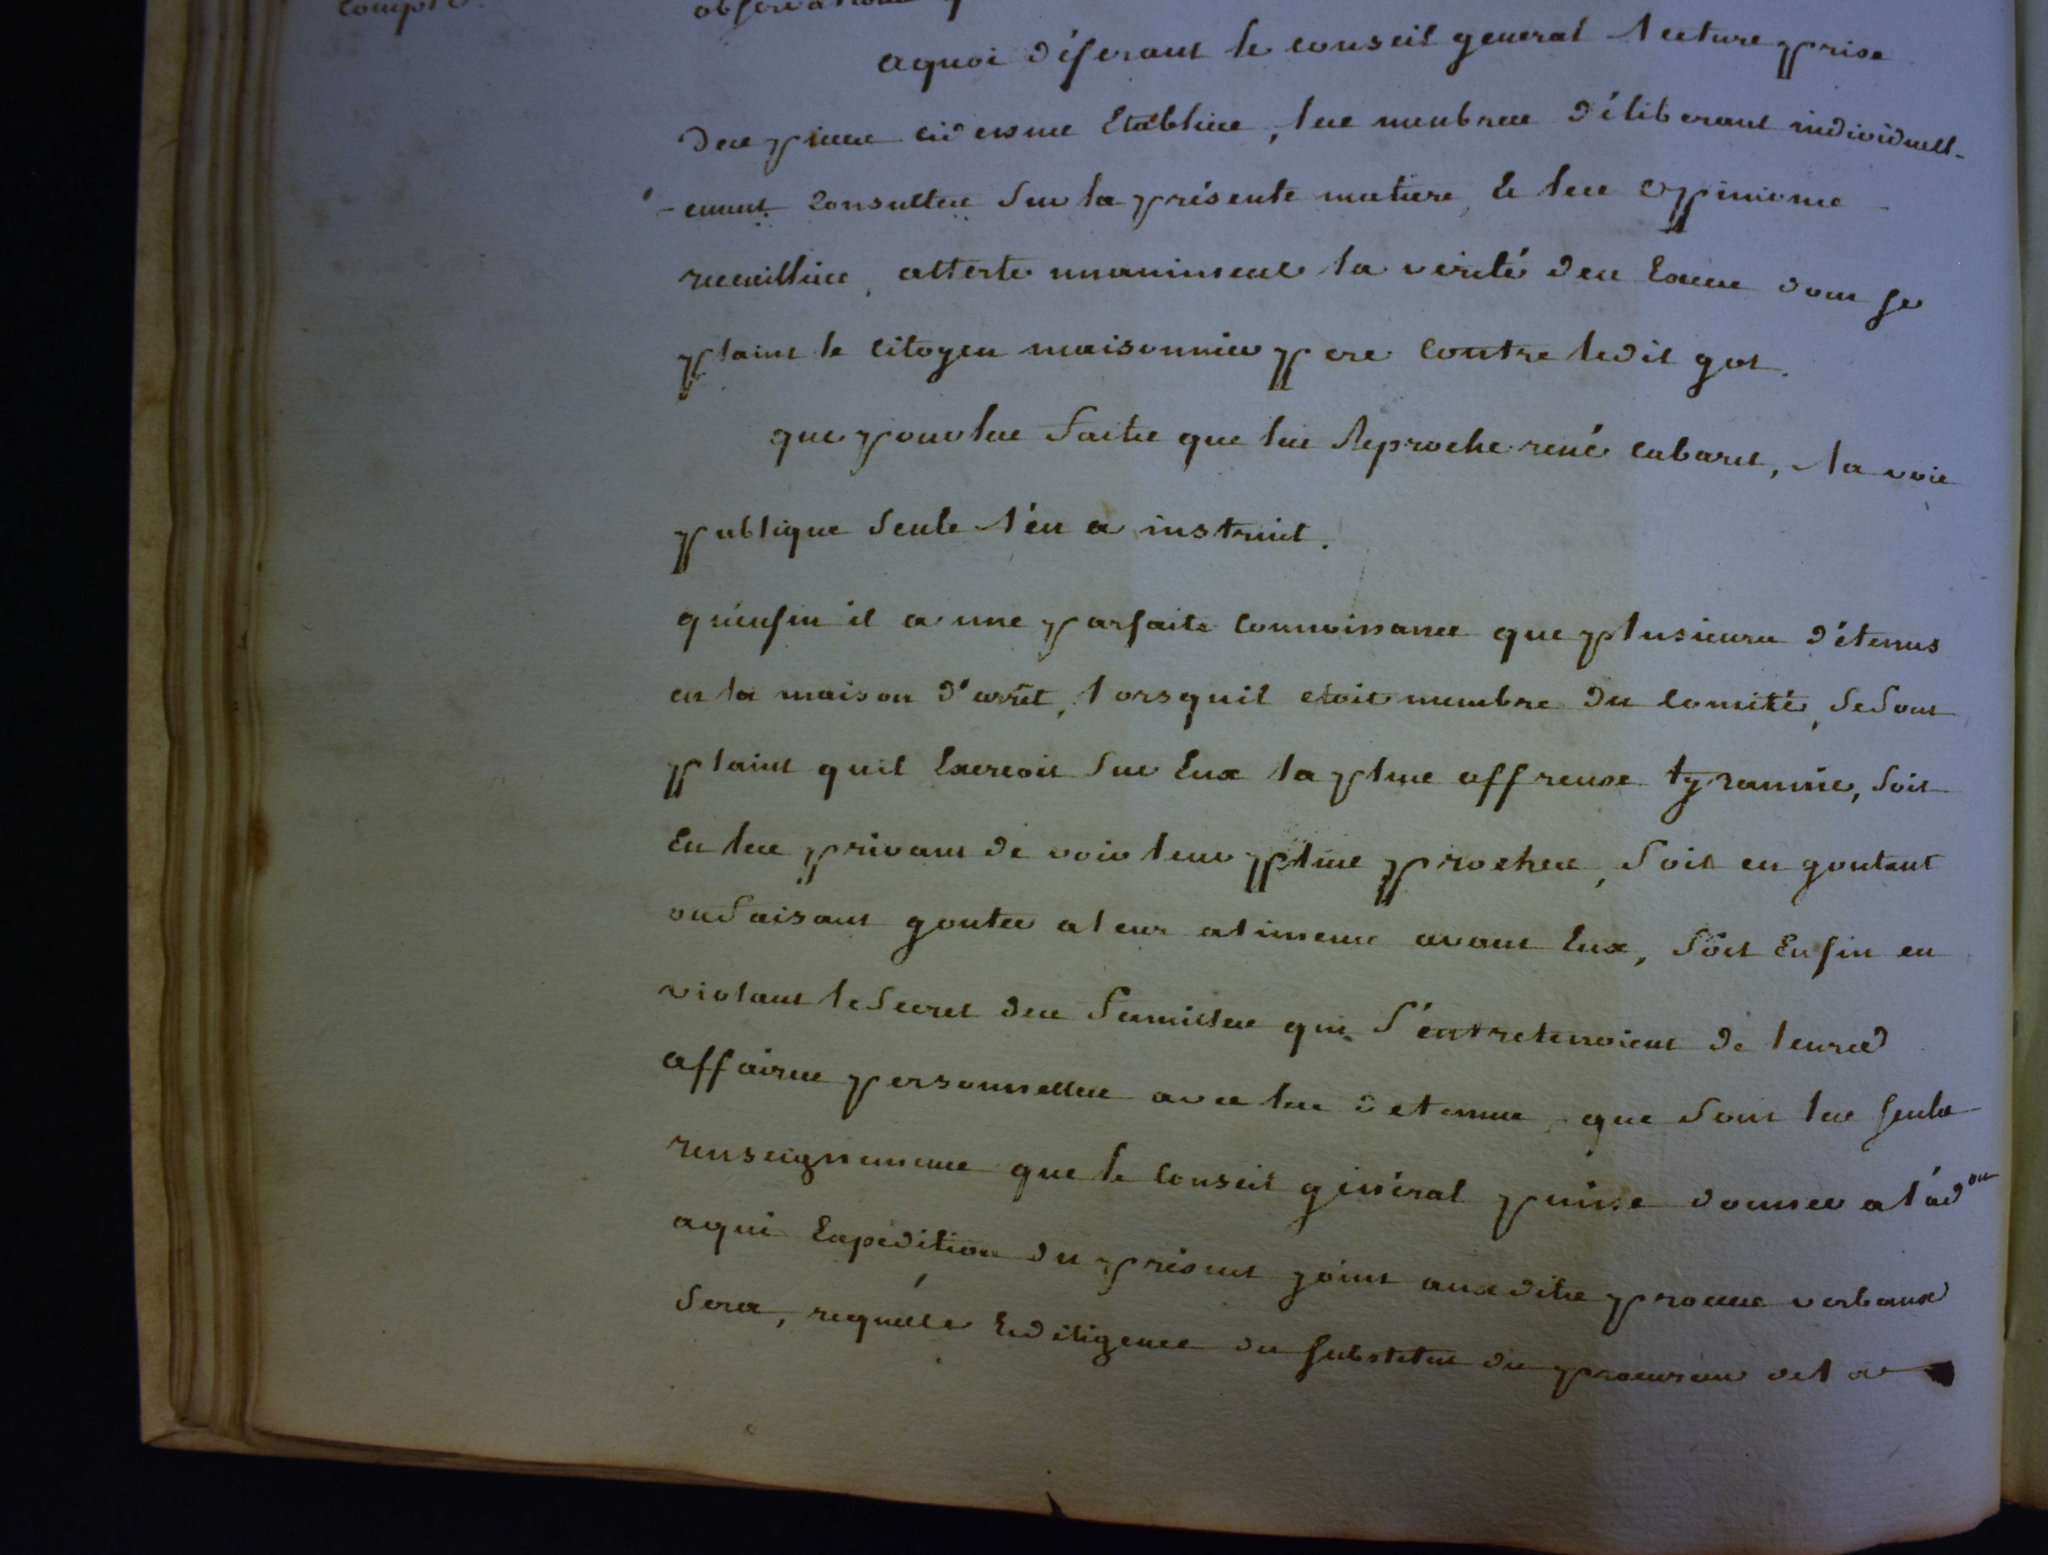 compte.
observations
aquoi déferant le conseil general lecture prise
des pieces cidessus Etablies, les membres déliberant individuell-
-ement consultés sur la présente matiere, et les opinions
recueillies, atteste unanimement la verité des Exces dont se
plaint le citoyen maisonnier pere contre ledit got.
que pour les faits que lui Reproche rené cabaret, la voie
publique seule l'en a instruit.
qu'enfin il a une parfaite connoissance que plusieurs détenus
en la maison d'arrêt, lorsquil etoit membre du comité, se sont
plaint quil Exercoit sur Eux la plus affreuse tyrannie, soit
En les privant de voir leurs plus proches, soit en goutant
ou faisant gouter a leur aliments avant Eux, soit Enfin en
violant le secret des familles qui s'entretenoient de leurs
affaires personnelles avec les detenus, que sont les seuls
renseignements que le Conseil général puisse donner a l'ad.on
aqui Expedition du présent joint auxdits procès verbaux
sera, requête Et diligence du substitut du procureur de la